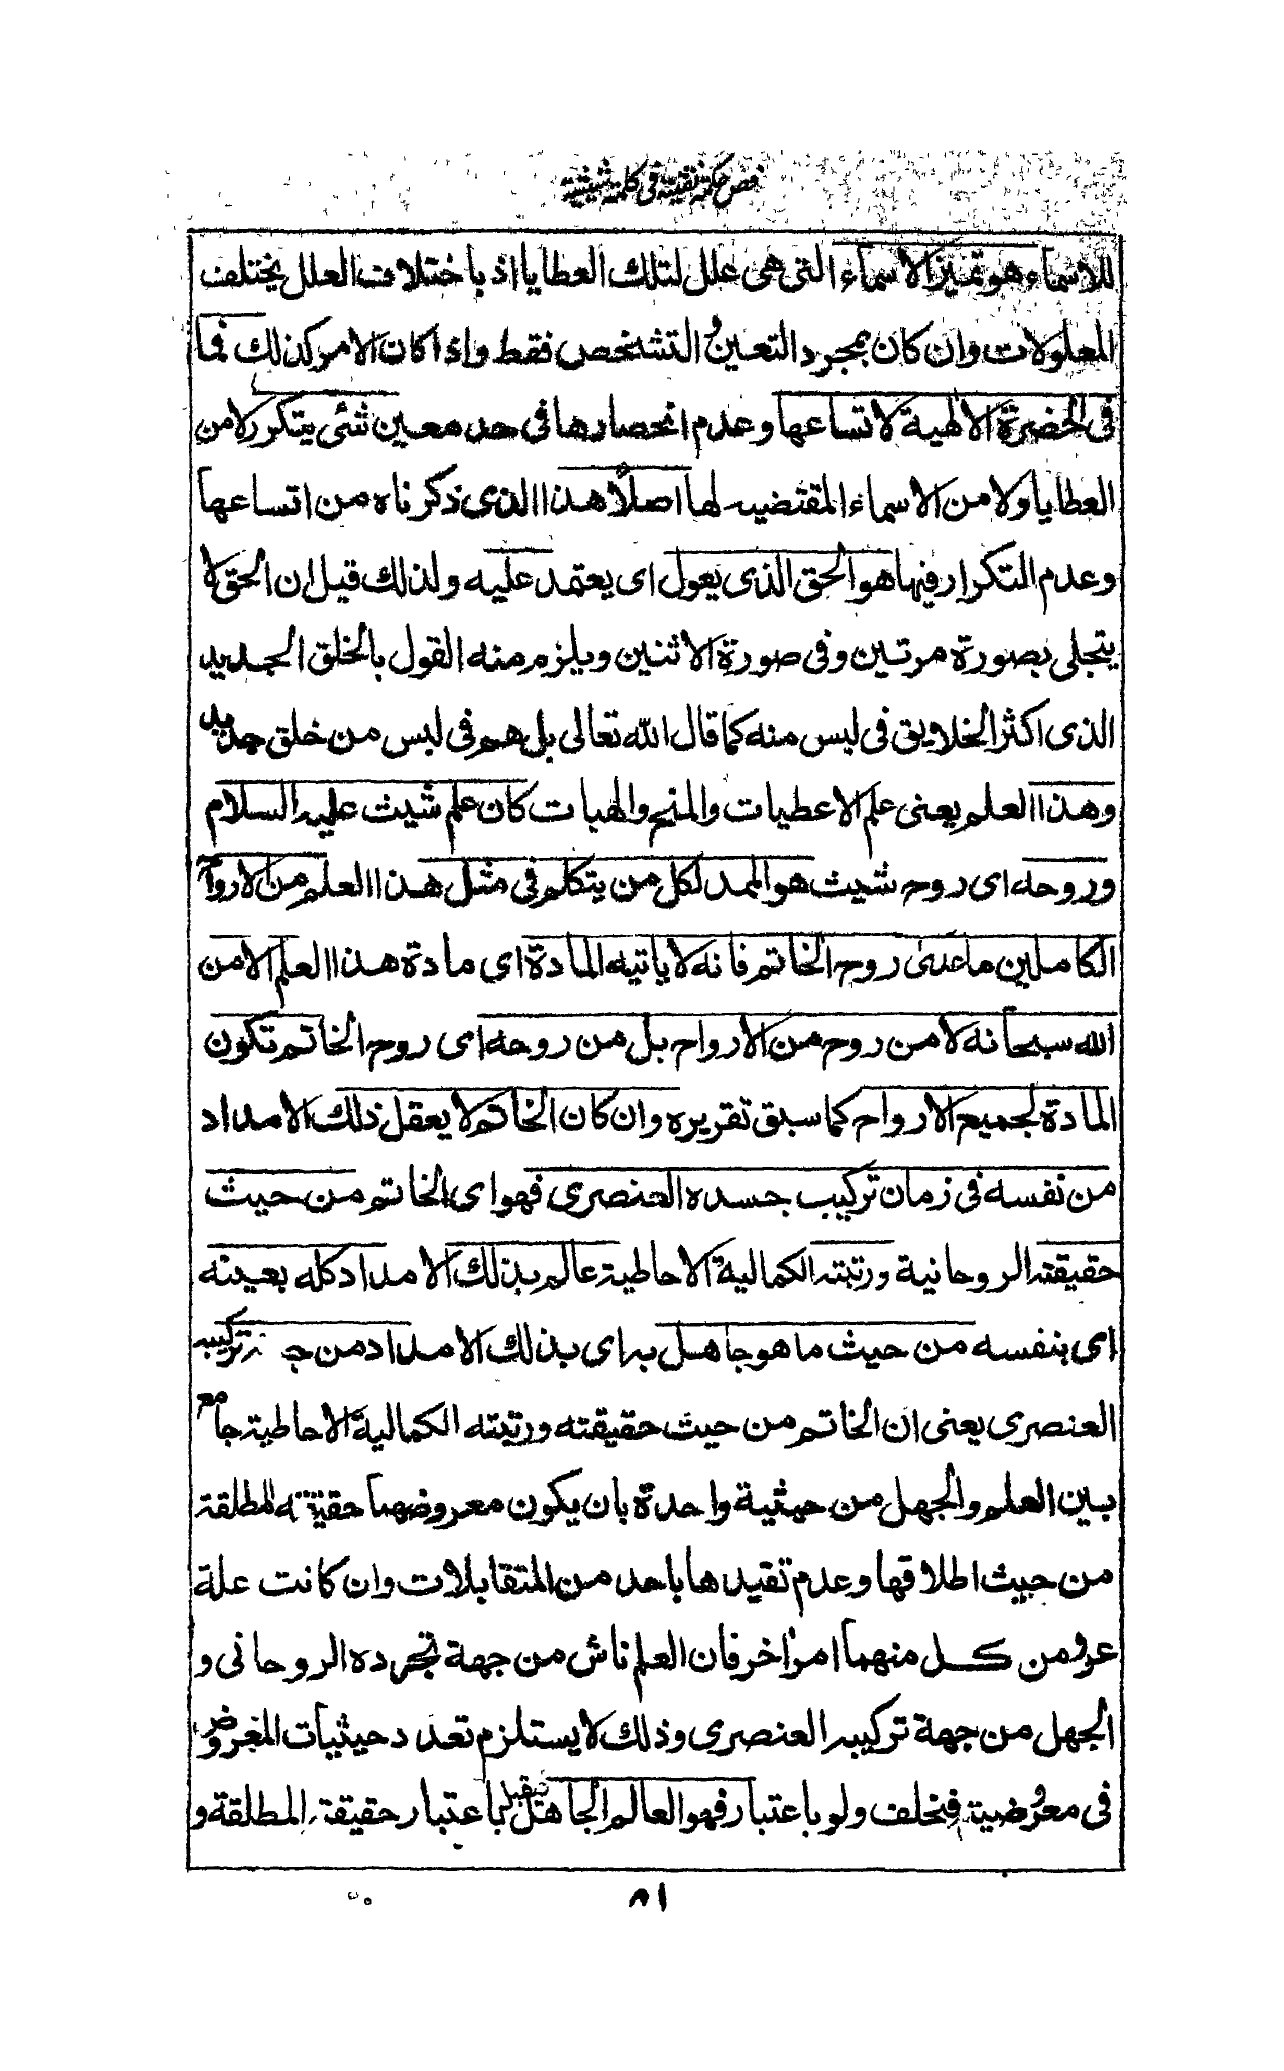 فص حكمة نفثية في كلمة شيثية
للاسماء هو تميز الاسماء التى هى علل لتلك العطايا اذ باختلاف العلل يختلف
المعلولات وان كان بمجرد التعين والتشخص فقط واذا كان الامر كذلك فما
فى الحضرة الالهية لاتساعها وعدم انحصارها فى حد معين شئى يتكرر لا من
العطايا ولا من الاسماء المقتضيه لها اصلاً هذا الذى ذكرناه من اتساعها
وعدم التكرار فيها هو الحق الذى يعول اى يعتمد عليه ولذلك قيل ان الحق لا
يتجلى بصورة مرتين وفى صورة الاثنين ويلزم منه القول بالخلق الجديد
الذى اكثر الخلايق فى لبس منه كما قال الله تعالى بل هم فى لبس من خلق جديد
وهذا العلم يعنى علم الاعطيات والمنح والهبات كان علم شيث عليه السلام
وروحه اى روح شيث هو الممد لكل من يتكلم فى مثل هذا العلم من الارواح
الكاملين ماعدى روح الخاتم فانه لا ياتيه المادة اى مادة هذا العلم الا من
الله سبحانه لا من روح من الارواح بل من روحه اى روح الخاتم تكون
المادة لجميع الارواح كما سبق تقريره وان كان الخاتم لا يعقل ذلك الامداد
من نفسه فى زمان تركيب جسده العنصرى فهو اى الخاتم من حيث
حقيقته الروحانية ورتبته الكمالية الاحاطية عالم بذلك الامداد كله بعينه
اى بنفسه من حيث ما هو جاهل به اى بذلك الامداد من تركيبه
العنصرى يعنى ان الخاتم من حيث حقيقته ورتبته الكمالية الاحاطية جامع
بين العلم والجهل من حيثية واحدة بان يكون معروضهما حقيقته المطلقة
من حيث اطلاقها وعدم تقيدها باحد من المتقابلات وان كانت علة
عروض كل منهما امراً اخر فان العلم ناش من جهة تجرده الروحانى و
الجهل من جهة تركيبه العنصرى وذلك لا يستلزم تعدد حيثيات المعروض
فى معروضية فنخلف ولو باعتبار فهو العالم الجاهل فيقبل باعتبار حقيقته المطلقة و
٨١